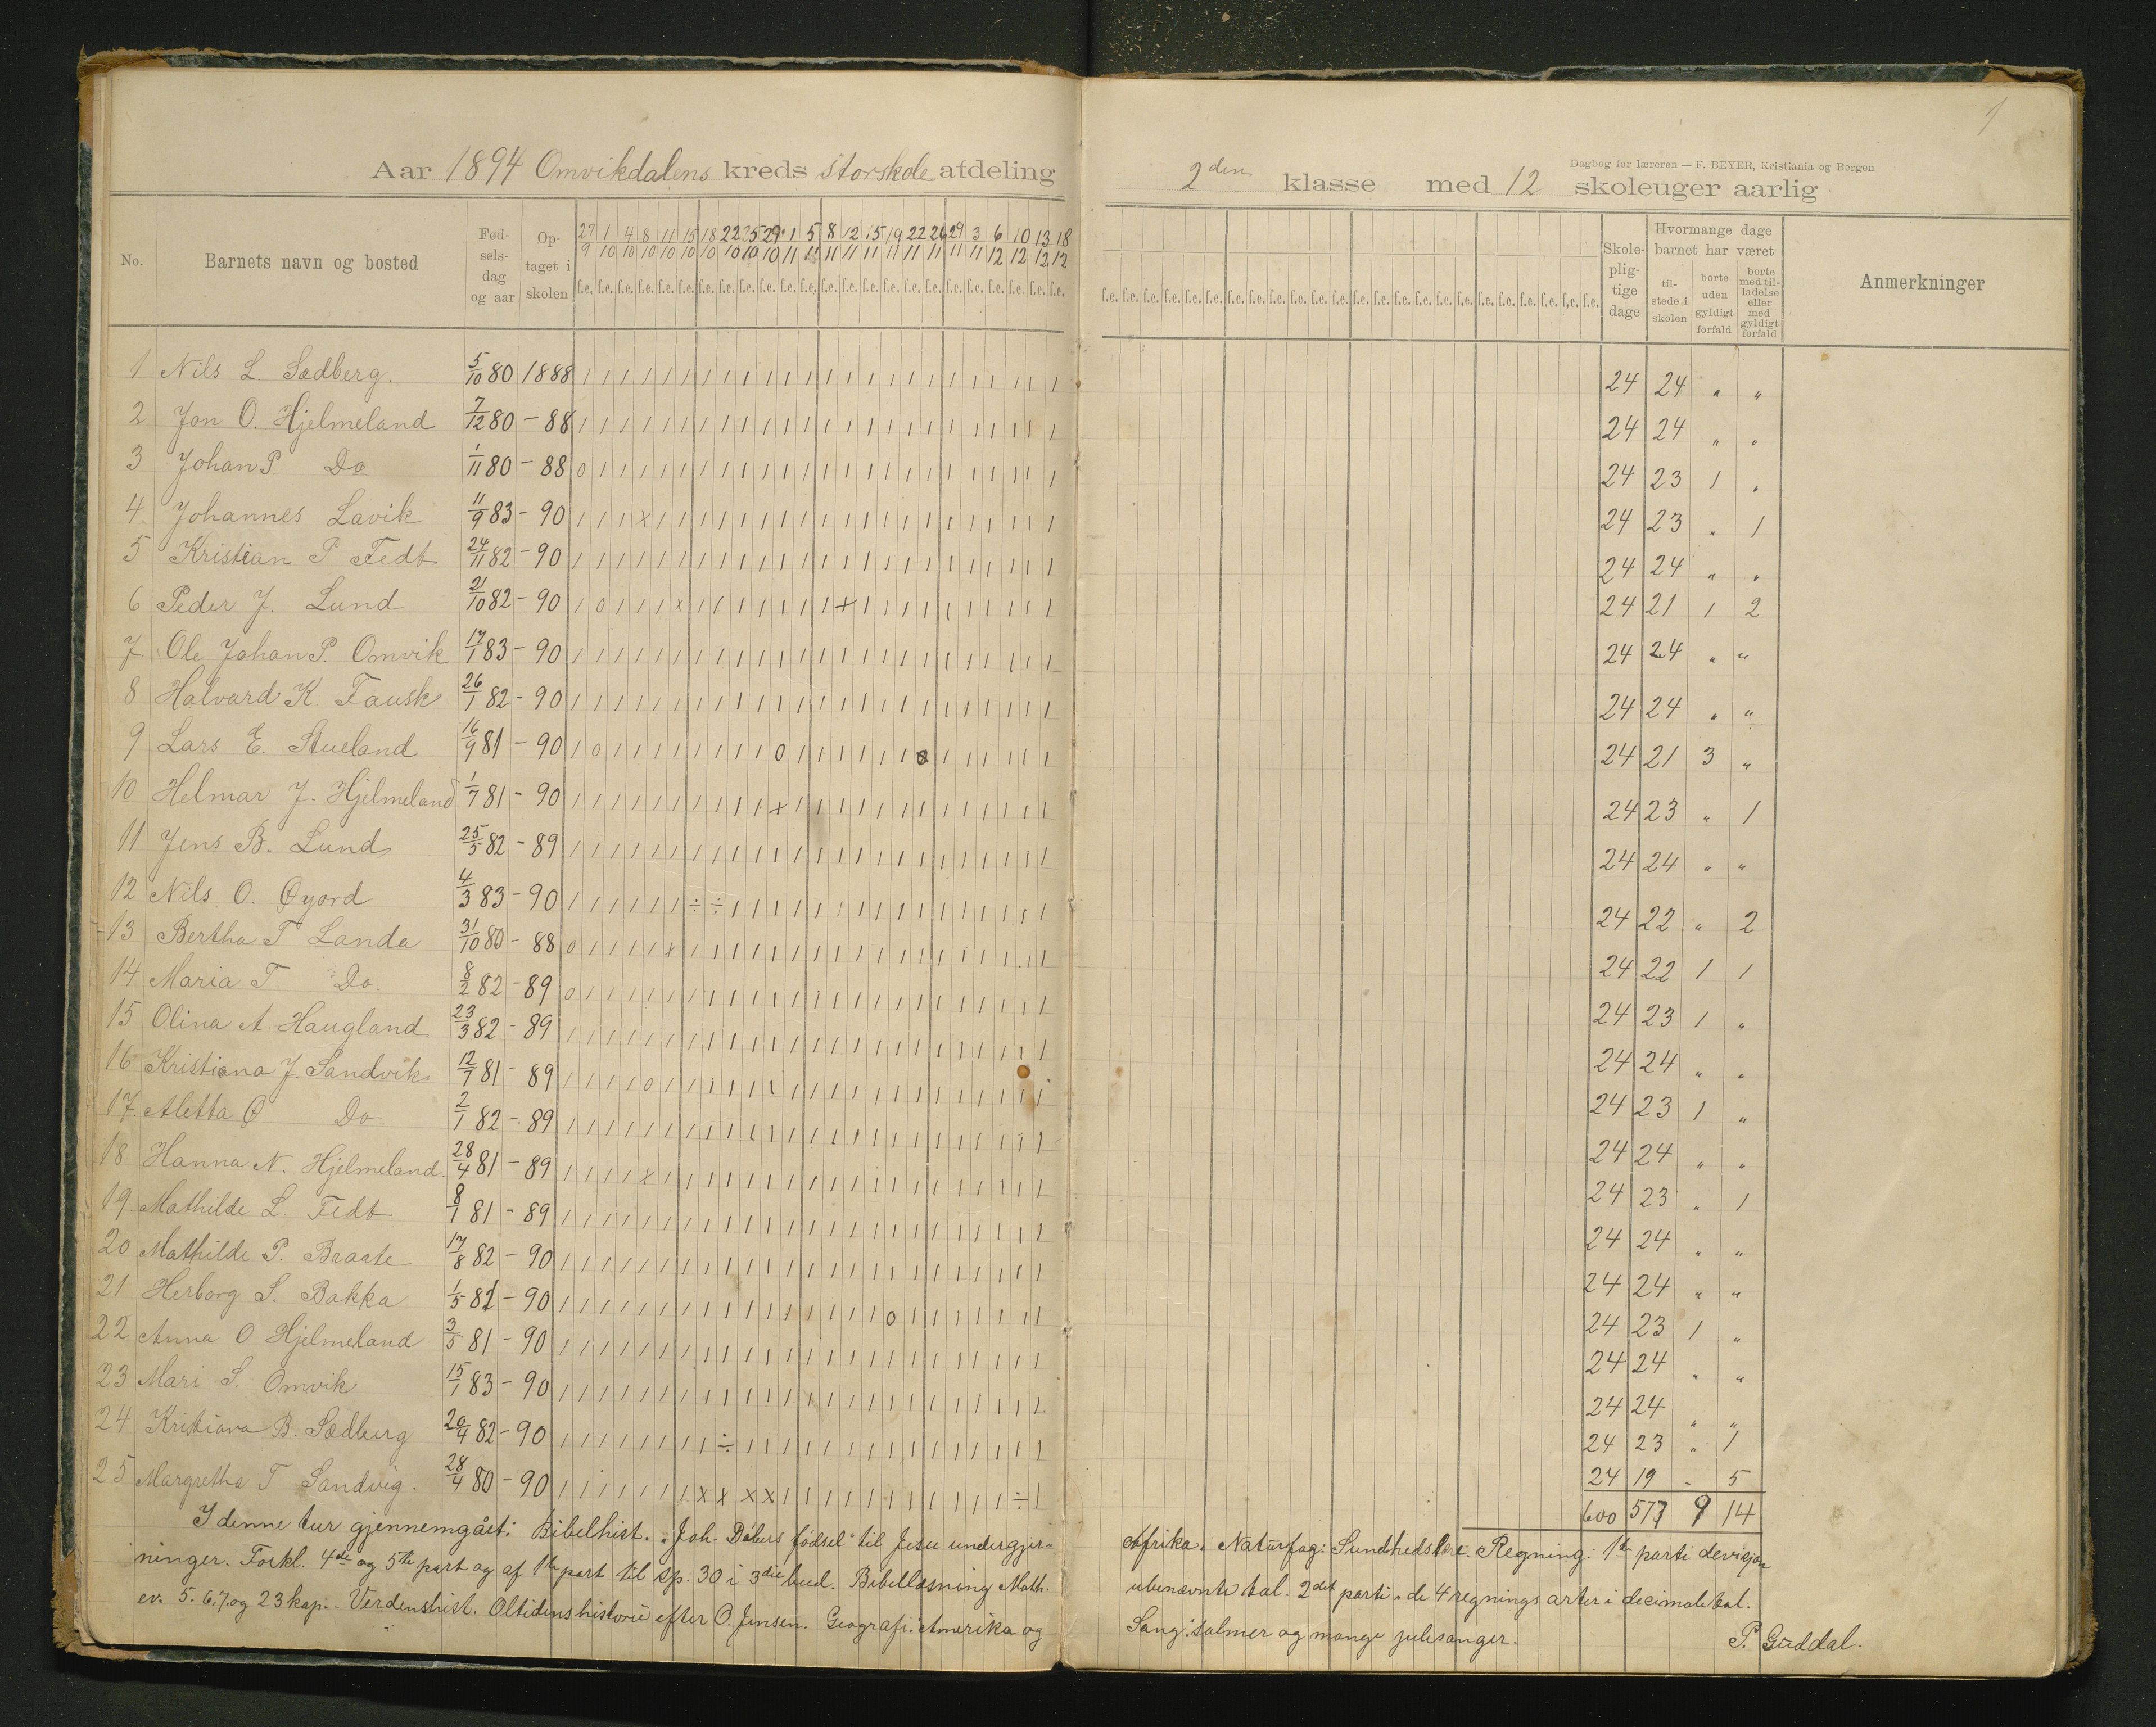 1
Dagbog for læreren — F. BEYER, Kristiania og Bergen
Aar 1894 Omvikdalens kreds storskole afdeling 2den klasse med 12 skoleuger aarlig
No. Barnets navn og bosted Fødselsdag og aar Optaget i skolen
27/9 1/10 4/10 8/10 11/10 15/10 18/10 22/10 25/10 29/10 1/11 5/11 8/11 12/11 15/11 19/11 22/11 26/11 29/11 3/12 6/12 10/12 13/12 18/12
f.e. f.e. f.e. f.e. f.e. f.e. f.e. f.e. f.e. f.e. f.e. f.e. f.e. f.e. f.e. f.e. f.e. f.e. f.e. f.e. f.e. f.e. f.e. f.e.
Skolepligtige dage Hvormange dage barnet har været tilstede i skolen borte uden gyldigt forfald borte med tilladelse eller med gyldigt forfald Anmerkninger
1 Nils L. Sædberg. 5/10 80 1888 24 24 " "
2 Jon O. Hjelmeland 7/12 80 - 88 24 24 " "
3 Johan P. Do 1/11 80 - 88 24 23 1 "
4 Johannes Lavik 11/9 83 - 90 24 23 " 1
5 Kristian P Fedt 24/11 82 - 90 24 24 " "
6 Peder J. Lund 21/10 82 - 90 24 21 1 2
7. Ole Johan P. Omvik 17/1 83 - 90 24 24 " "
8 Halvard K. Fausk 26/1 82 - 90 24 24 " "
9 Lars E. Stueland 16/9 81 - 90 24 21 3 "
10 Helmar J. Hjelmeland 1/7 81 - 90 24 23 " 1
11 Jens B. Lund 25/5 82 - 89 24 24 " "
12 Nils O. Øyord 4/3 83 - 90 24 22 " 2
13 Bertha T Landa 31/10 80 - 88 24 22 1 1
14 Maria T Do. 8/2 82 - 89 24 23 1 "
15 Olina A. Haugland 23/3 82 - 89 24 24 " "
16 Kristiana J. Sandvik 12/7 81 - 89 24 23 1 "
17. Aletta O Do 2/1 82 - 89 24 24 " "
18 Hanna N. Hjelmeland. 28/4 81 - 89 24 23 " 1
19. Mathilde L. Fedt 8/1 81 - 89 24 24 " "
20 Mathilde P. Braate 17/8 82 - 90 24 24 " "
21 Herborg S. Bakka 1/5 81 - 90 24 23 1 "
22 Anna O Hjelmeland 3/5 81 - 90 24 24 " "
23 Mari S. Omvik 15/1 83 - 90 24 24 " "
24 Kristiava B. Sædberg 20/4 82 - 90 24 23 " 1
25 Margretha T Sandvig. 28/4 80 - 90 24 19 - 5
600 577 9 14
I denne tur gjennemgået: Bibelhist. "Joh. Døbers fødsel" til Jesu undergjer-
ninger. Forkl. 4de og 5te part og af 1te part til sp. 30 i 3die bud. Bibellæsning Math.
ev. 5. 6. 7. og 23 kap. - Verdenshist. Oltidens historie efter O. Jensen. Geografi: Amerika og
Afrika. Naturfag: Sundhedslære. Regning: 1te parti devisjon
ubenævnte tal. 2det parti: de 4 regningsarter i decimaltal.
Sang: salmer og mange julesanger. P. Guddal.